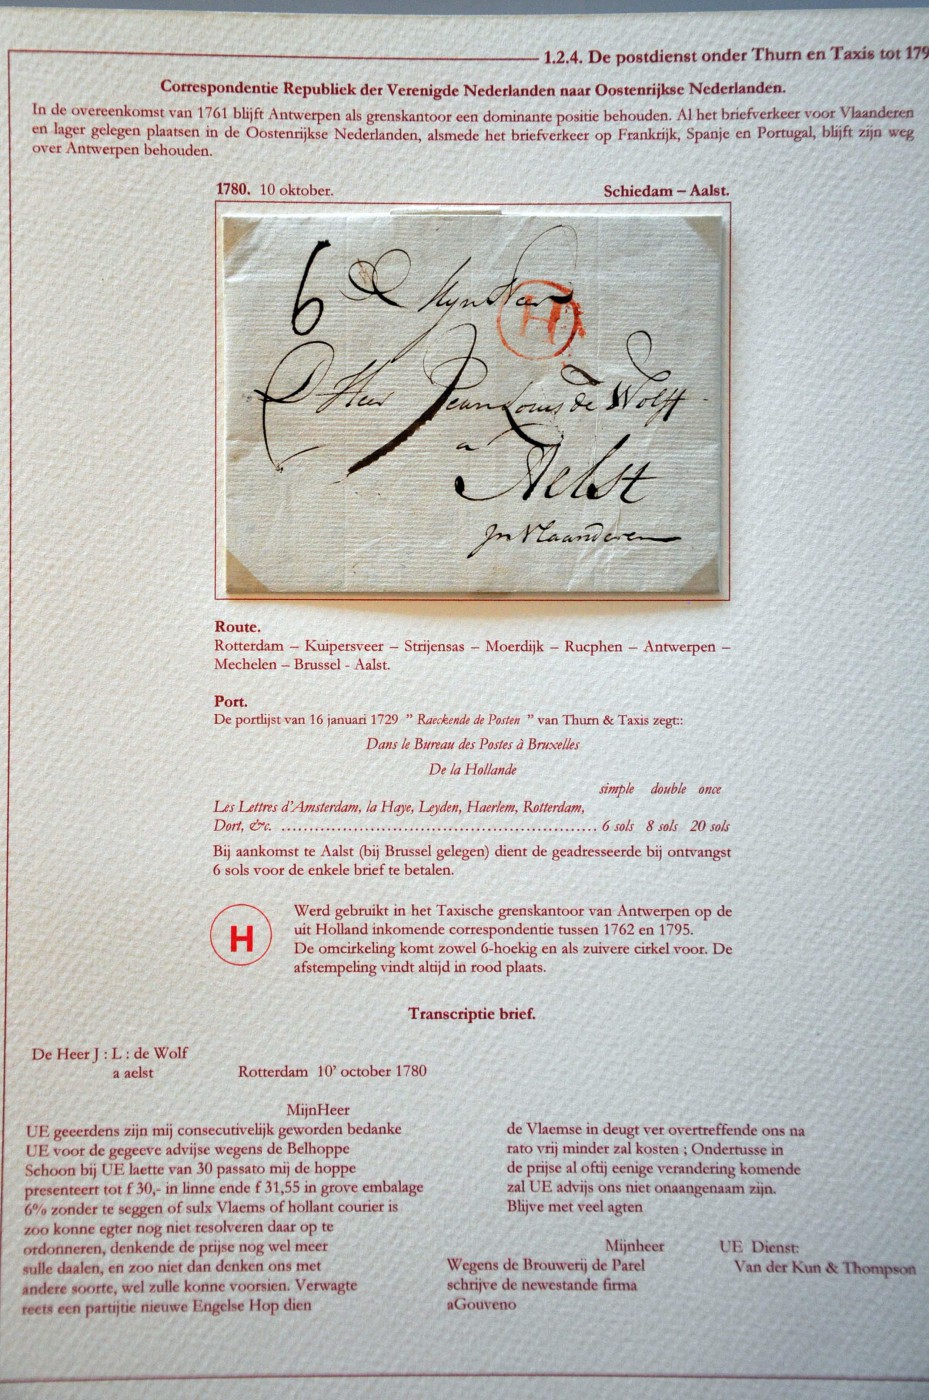 1.2.4. De postdienst onder Thurn en Taxis tot 179
Correspondentie Republiek der Verenigde Nederlanden naar Oostenrijkse Nederlanden.
In de overeenkomst van 1761 blijft Antwerpen als grenskantoor een dominante positie behouden. Al het briefverkeer voor Vlaanderen
en lager gelegen plaatsen in de Oostenrijkse Nederlanden, alsmede het briefverkeer op Frankrijk, Spanje en Portugal, blijft zijn weg
over Antwerpen behouden.
1780. 10 oktober. Schiedam – Aalst.
6 Myn Heer
H
D Heer Jean Louis de Wolff
a
Aelst
in Vlaanderen
Route.
Rotterdam – Kuipersveer – Strijensas – Moerdijk – Rucphen – Antwerpen –
Mechelen – Brussel - Aalst.
Port.
De portlijst van 16 januari 1729 " Raeckende de Posten " van Thurn & Taxis zegt::
Dans le Bureau des Postes à Bruxelles
De la Hollande
simple double once
Les Lettres d'Amsterdam, la Haye, Leyden, Haerlem, Rotterdam,
Dort, &c. ......................................................... 6 sols 8 sols 20 sols
Bij aankomst te Aalst (bij Brussel gelegen) dient de geadresseerde bij ontvangst
6 sols voor de enkele brief te betalen.
H
Werd gebruikt in het Taxische grenskantoor van Antwerpen op de
uit Holland inkomende correspondentie tussen 1762 en 1795.
De omcirkeling komt zowel 6-hoekig en als zuivere cirkel voor. De
afstempeling vindt altijd in rood plaats.
Transcriptie brief.
De Heer J : L : de Wolf
a aelst Rotterdam 10' october 1780
MijnHeer
UE geeerdens zijn mij consecutivelijk geworden bedanke
UE voor de gegeeve advijse wegens de Belhoppe
Schoon bij UE laette van 30 passato mij de hoppe
presenteert tot f 30,- in linne ende f 31,55 in grove embalage
6% zonder te seggen of sulx Vlaems of hollant courier is
zoo konne egter nog niet resolveren daar op te
ordonneren, denkende de prijse nog wel meer
sulle daalen, en zoo niet dan denken ons met
andere soorte, wel zulle konne voorsien. Verwagte
reets een partijtie nieuwe Engelse Hop dien
de Vlaemse in deugt ver overtreffende ons na
rato vrij minder zal kosten ; Ondertusse in
de prijse al oftij eenige verandering komende
zal UE advijs ons niet onaangenaam zijn.
Blijve met veel agten
Mijnheer UE Dienst:
Wegens de Brouwerij de Parel Van der Kun & Thompson
schrijve de newestande firma
aGouveno